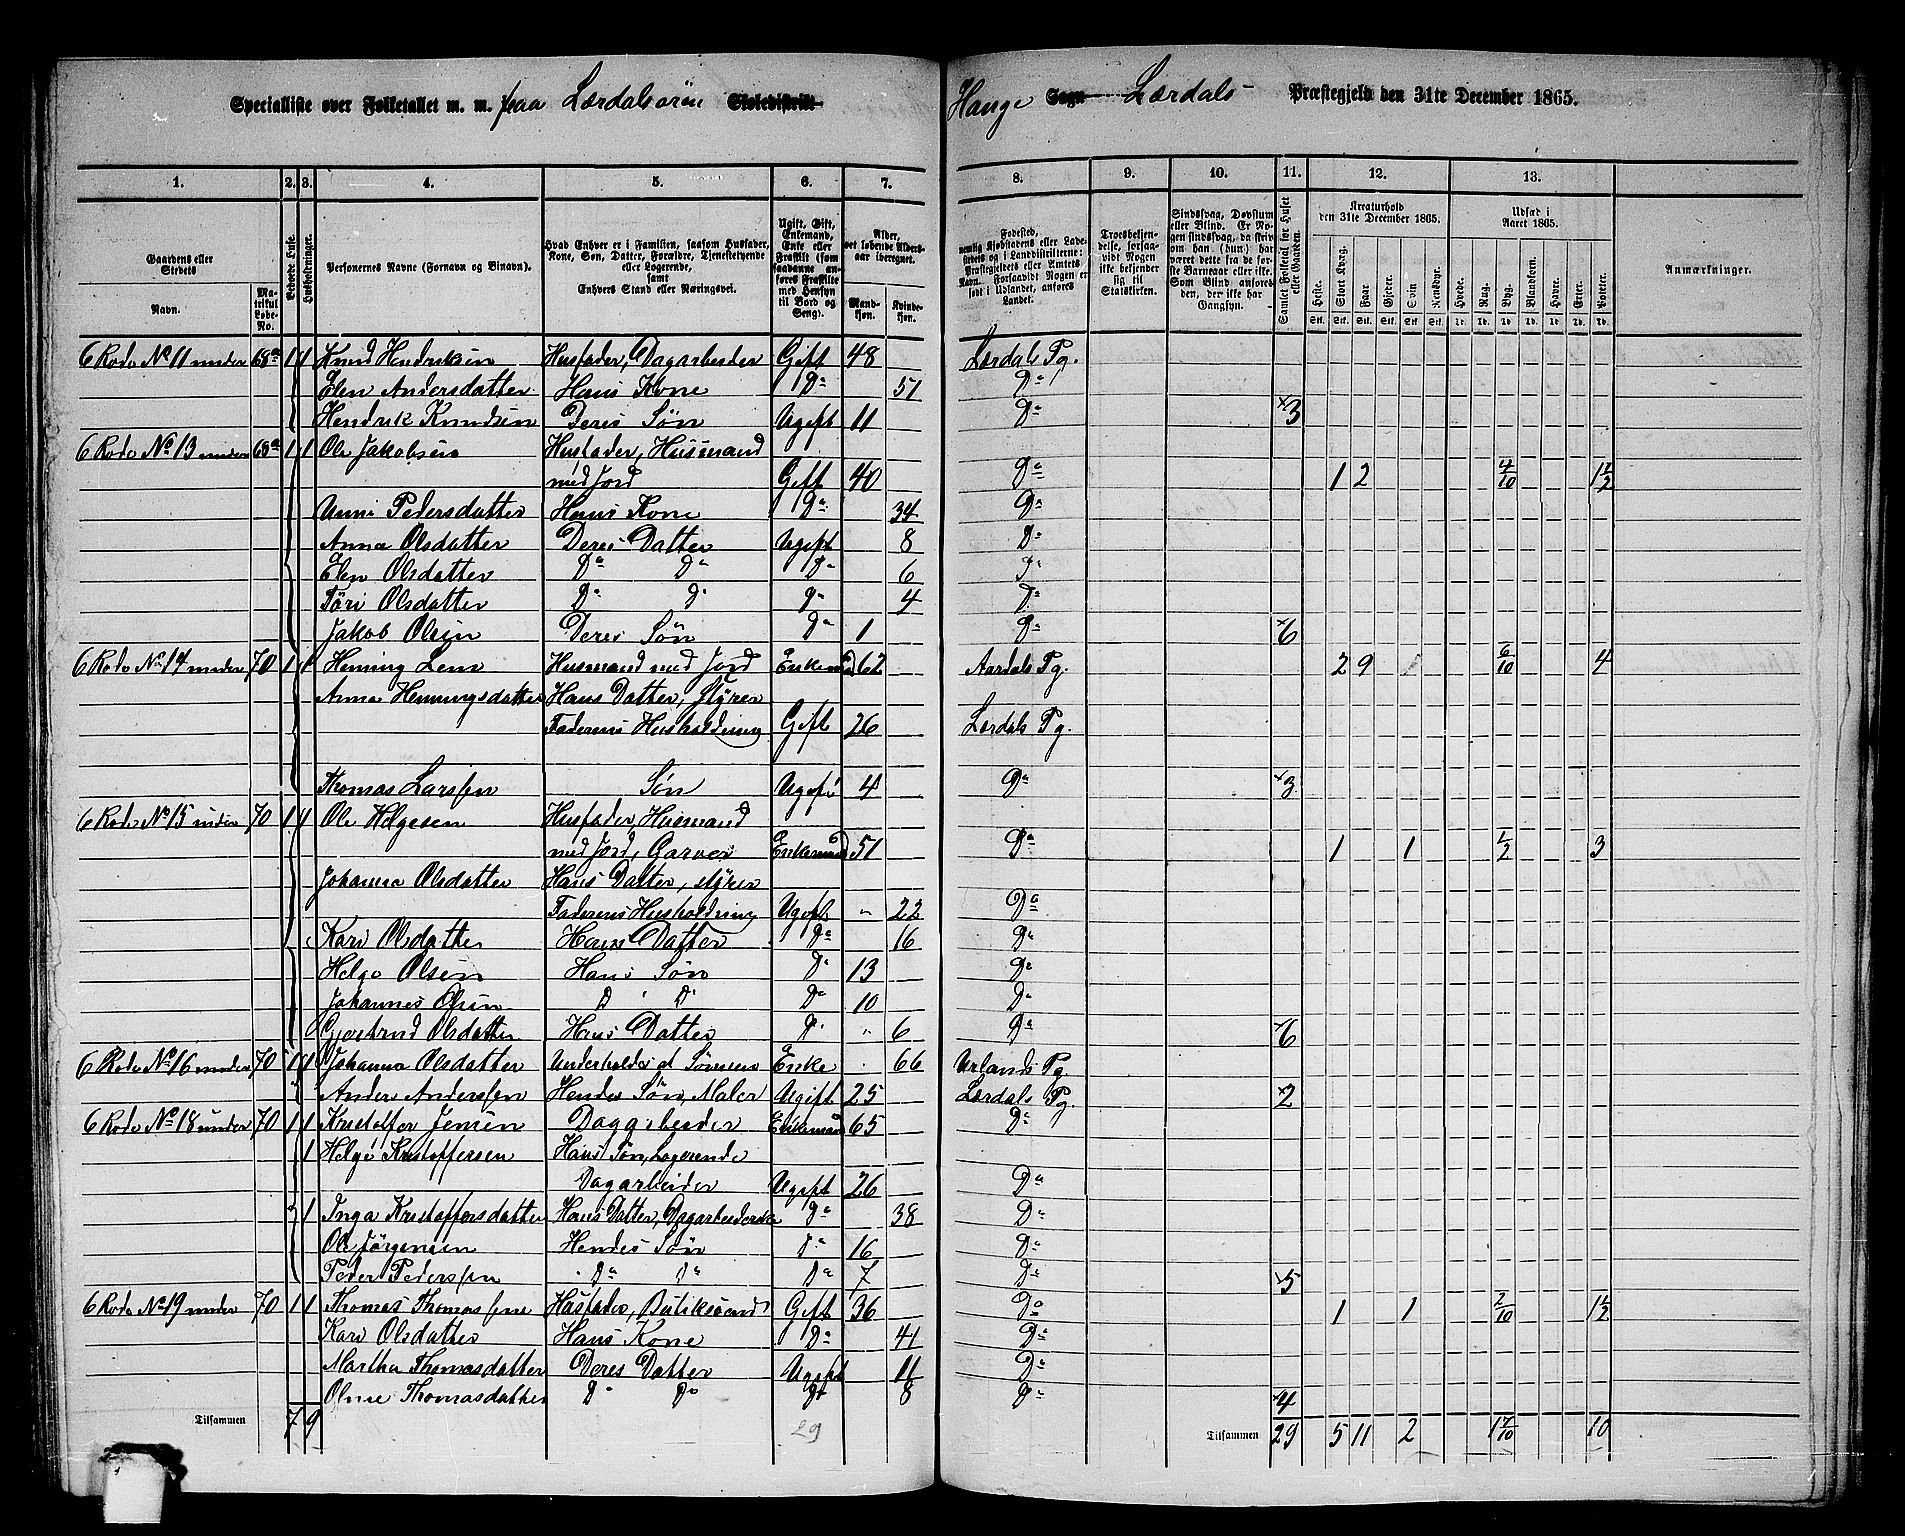 Specialliste over Folketallet m. m. paa Lærdalsøren Skoledistrikt Hauge Sogn Lærdals Præstegjeld den 31te December 1865.
1. 2. 3. 4. 5. 6. 7. 8. 9. 10. 11. 12. 13.
Gaardens eller Stedets
Navn. Matrikul Løbe-No.
Beboede Huse.
Husholdninger.
Personernes Navne (Fornavn og Binavn).
Hvad Enhver er i Familien, saasom Husfader, Kone, Søn, Datter, Forældre, Tjenestetyende eller Logerende, samt Enhvers Stand eller Næringsvei.
Ugift, Gift, Enkemand, Enke eller Fraskilt (som saadanne anføres Fraskilte med Hensyn til Bord og Seng).
Alder, det løbende Alders-aar iberegnet.
Mandkjøn. Kvindekjøn.
Fødested, nemlig Kjøbstadens eller Ladestedets eller i Landdistrikterne: Præstegjeldets eller Amtets Navn. Forsaavidt Nogen er født i Udlandet, anføres Landet.
Troesbekjendelse, forsaavidt Nogen ikke bekjender sig til Statskirken.
Sindssvag, Døvstum eller Blind. Er Nogen sindssvag, da skrives om han (hun) har været dette fra de første Barneaar eller ikke. Som Blind anføres den, der ikke har Gangsyn.
Samlet Folketal for Huset eller Gaarden.
Kreaturhold den 31te December 1865.
Heste. Stort Kvæg. Faar. Gjeder. Svin. Rensdyr.
Udsæd i Aaret 1865.
Hvede. Rug. Byg. Blandkorn. Havre. Erter. Poteter.
Anmærkninger.
6 Rode No 11 under 68a 1 1 Knud Hendriksen Husfader, Dagarbeider Gift 48 Lærdals Pg.
Elen Andersdatter Hans Kone Do 51 Do
Hendrik Knudsen Deres Søn Ugift 11 Do 3
6 Rode No 13 under 68a 1 1 Ole Jakobsen Husfader, Husmand
med Jord Gift 40 Do 1 2 4/10 1 1/2
Unni Pedersdatter Hans Kone Do 34 Do
Anna Olsdatter Deres Datter Ugift 8 Do
Elen Olsdatter Do Do Do 6 Do
Töri Olsdatter Do Do Do 4 Do
Jakob Olsen Deres Søn Do 1 Do 6
6 Rode No 14 under 70 1 1 Henning Lem Husmand med Jord Enkemand 62 Aardals Pg. 2 9 1 6/10 4
Anna Henningsdatter Hans Datter, styrer
Faderens Husholdning Gift 26 Lærdals Pg.
Thomas Larssen Søn Ugift 4 Do 3
6 Rode No 15 under 70 1 1 Ole Helgesen Husfader, Husmand
med Jord, Garver Enkemand 51 Do 1 1 1/2 3
Johanna Olsdatter Hans Datter, styrer
Faderens Husholdning Ugift " 22 Do
Kari Olsdatter Hans Datter Do 16 Do
Helge Olsen Hans Søn Do 13 Do
Johannes Olsen D D Do 10 Do
Gjertrud Olsdatter Hans Datter Do " 6 Do 6
6 Rode No 16 under 70 1 1 Johanna Olsdatter Underholdes af Sønnen Enke 66 Urlands Pg.
Anders Anderssen Hendes Søn, Maler Ugift 25 Lærdals Pg. 2
6 Rode No 18 under 70 1 1 Kristoffer Jensen Dagarbeider Enkemand 65 Do
1 Helge Kristoffersen Hans Søn, Logerende
Dagarbeider Ugift 26 Do
1 Inga Kristoffersdatter Hans Datter, Dagarbeiderske Do 38 Do
Ole Jörgensen Hendes Søn Do 16 Do
Peder Pederssen Do Do Do 7 Do 5
6 Rode No 19 under 70 1 1 Thomas Thomassen Husfader, Gift 36 Do 1 1 2/10 1 1/2
Kari Olsdatter Hans Kone Do 41 Do
Martha Thomasdatter Deres Datter Ugift 11 Do
Oline Thomasdatter Do Do Do 8 Do 4
Tilsammen 7 9 29 Tilsammen 29 5 11 2 1 7/10 10